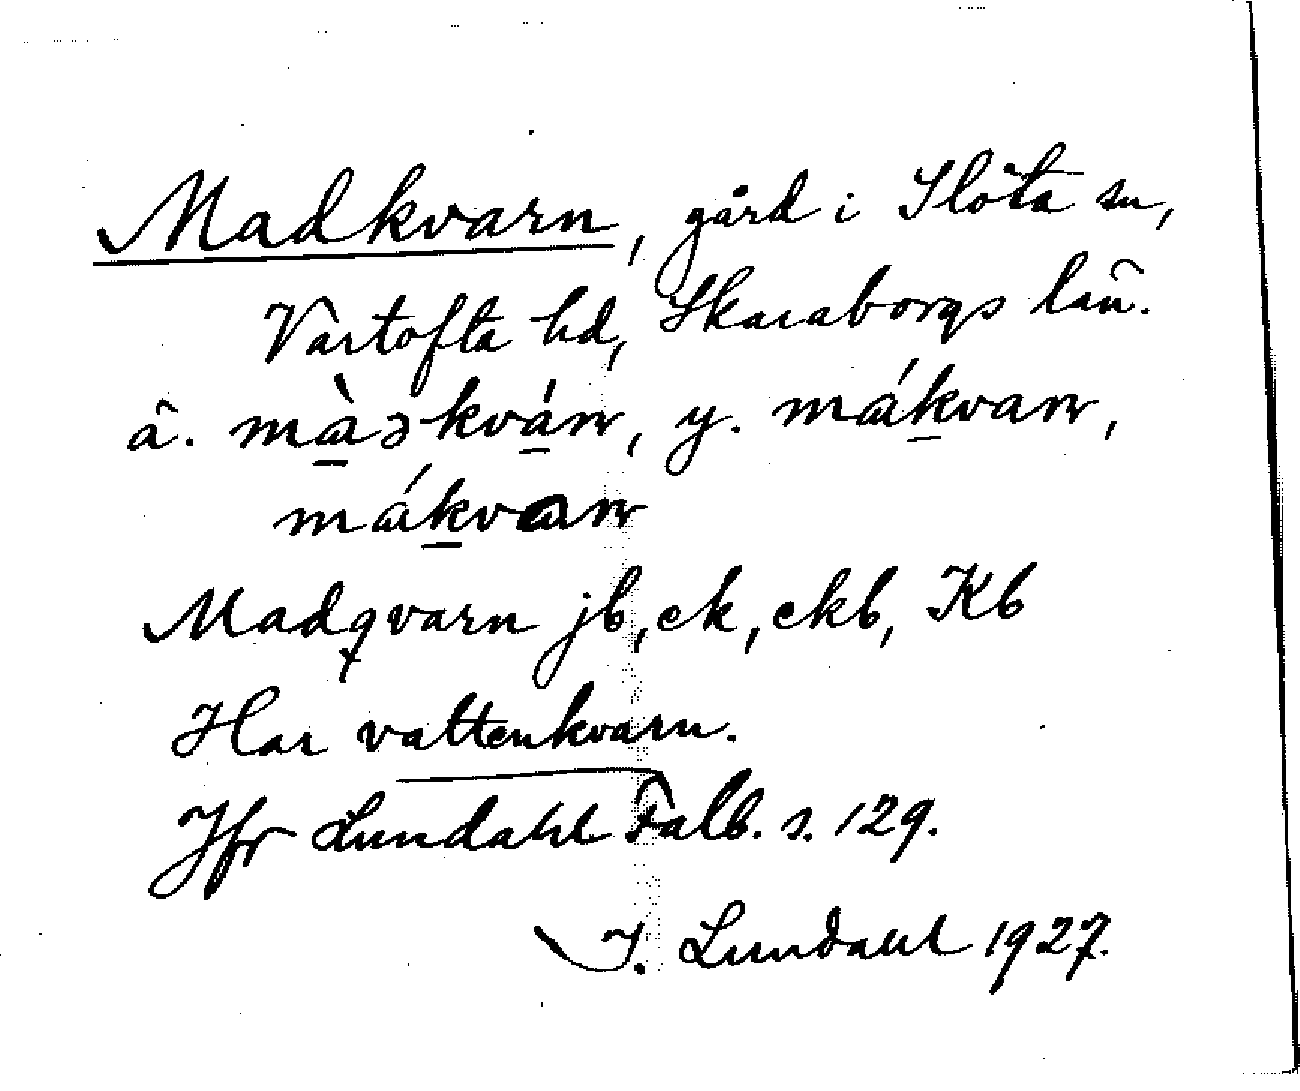 Madkvarn, gård i Slöta sn,
Vartofta hd, Skaraborgs län.
ä. màəkván, y. mákvan,
mákvan
Madqvarn jb, ek, ekb, Kb
Har vattenkvarn.
Jfr Lundahl Falb. s. 129.
I. Lundahl 1927.